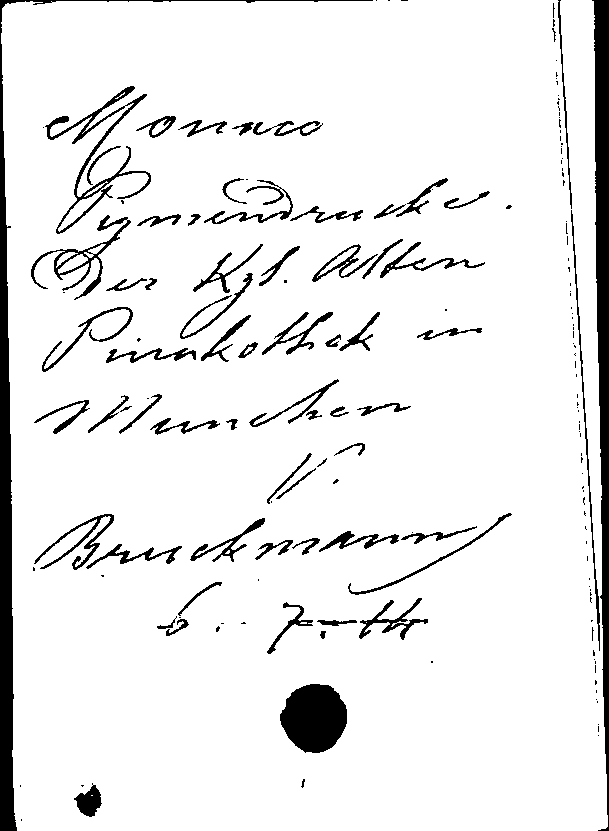 Monaco
Pigmendrucke.
Der Kgl. Alten
Pinakothek in
Munchen
V.
Bruckmann
6. 7. 14